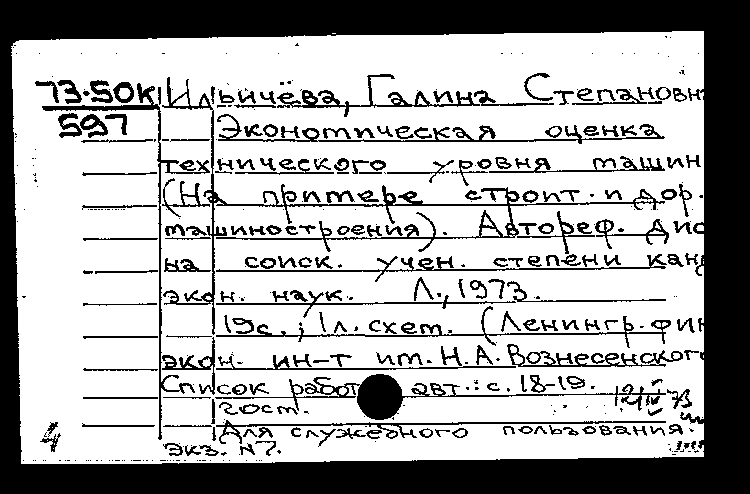 73-50К Ильичёва, Галина Степановн
597 Экономическая оценка
технического уровня машин
(На примере строит. и дор.
машиностроения). Автореф. Дис
на соиск. учен. степени канд
экон. наук. Л., 1973.
19с.; 1л. схем. (Ленингр. фин
экон. ин-т им. Н.А. Вознесенского
Список работ авт.: с. 18-19.
20ст.
Для служебного пользования.
4 экз. №7.